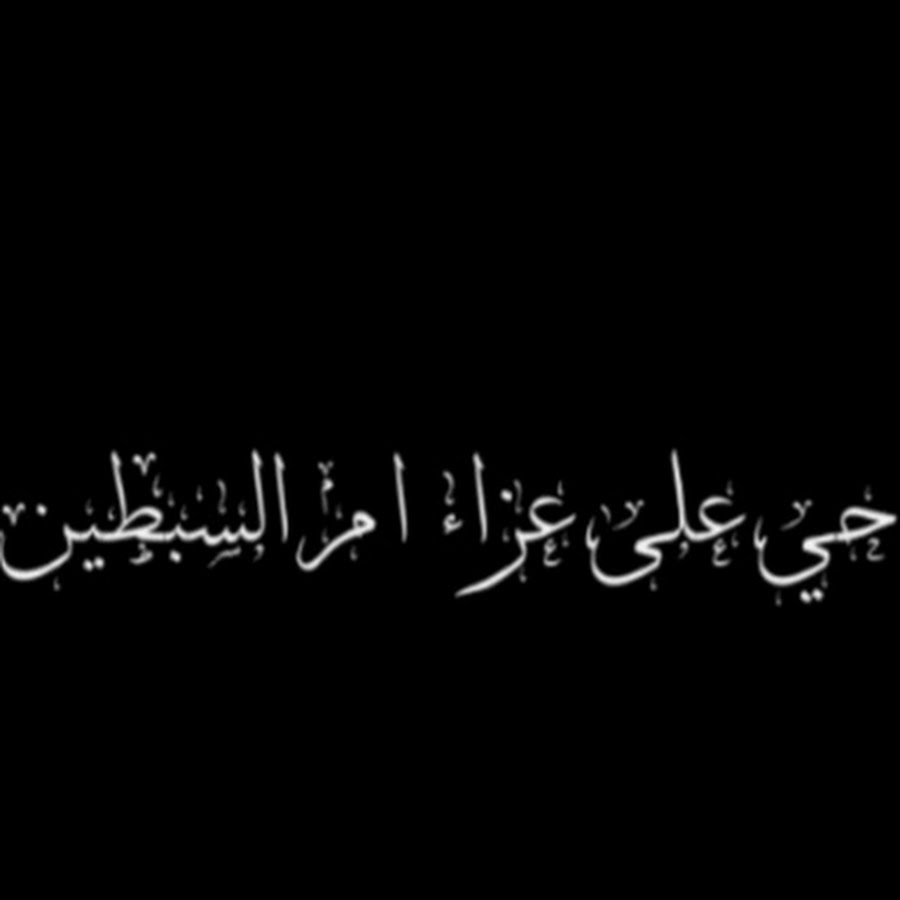 حي على عزاء ام السبطين